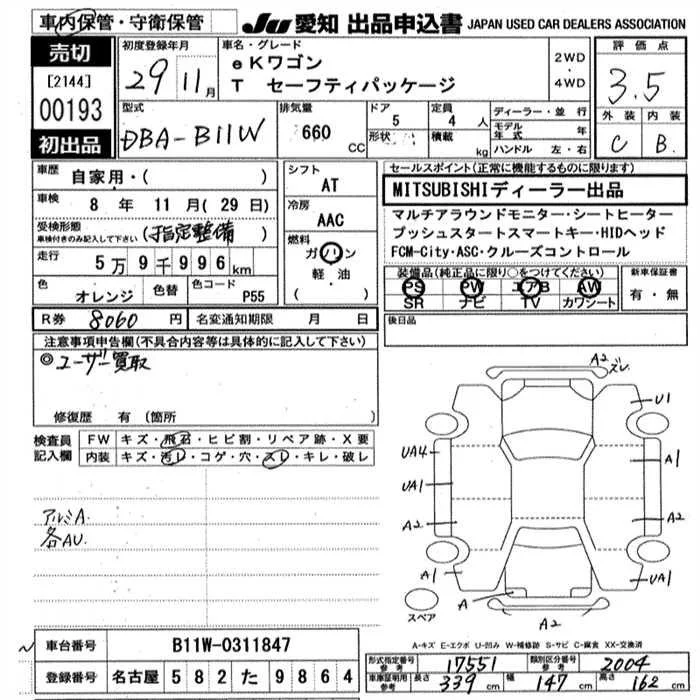 車内保管・守衛保管 JU 愛知 出品申込書 JAPAN USED CAR DEALERS ASSOCIATION
売切
[2144]
00193
初出品
初度登録年月
29 11月
車名・グレード
eKワゴン
T セーフティパッケージ
2WD
・
4WD
評価点
3.5
外装 内装
C B.
型式
DBA-B11W
排気量
660 CC
ドア 5
形状
定員 4 人
積載 kg
ディーラー・並行
モデル年式 年
ハンドル 左・右
車歴 自家用・( )
車検 8 年 11 月(29 日)
受検形態
車検付きのみ記入して下さい (指定整備)
走行 5万9千996km
色 オレンジ 色替 色コード P55
シフト
AT
冷房
AAC
燃料
ガソリン
・
軽・油
( )
セールスポイント(正常に機能するものに限ります)
MITSUBISHIディーラー出品
マルチアラウンドモニター・シートヒーター
プッシュスタートスマートキー・HIDヘッド
FCM-City・ASC・クルーズコントロール
装備品(純正品に限り○をつけてください)
PS PW エアB AW
SR ナビ TV カワシート
新車保証書
有・無
R券 8060 円 名変通知期限 月 日
後日品
注意事項申告欄(不具合内容等は具体的に記入して下さい)
◎ユーザー買取
修復歴 有(箇所
検査員記入欄
FW キズ・飛石・ヒビ割・リペア跡・X要
内装 キズ・汚レ・コゲ・穴・スレ・キレ・破レ
アルミA.
各AU.
A2 ズレ
U1
UA4
A1
UA1
A2
A2
A1
UA1
A
A2
スペア
A-キズ E-エクボ U-凹み W-補修跡 S-サビ C-腐食 XX-交換済
車台番号 B11W-0311847
登録番号 名古屋 582 た 9864
形式指定番号参考 17551 類別区分番号参考 2004
車庫証明用参考 長さ 339 cm 幅 147 cm 高さ 162 cm